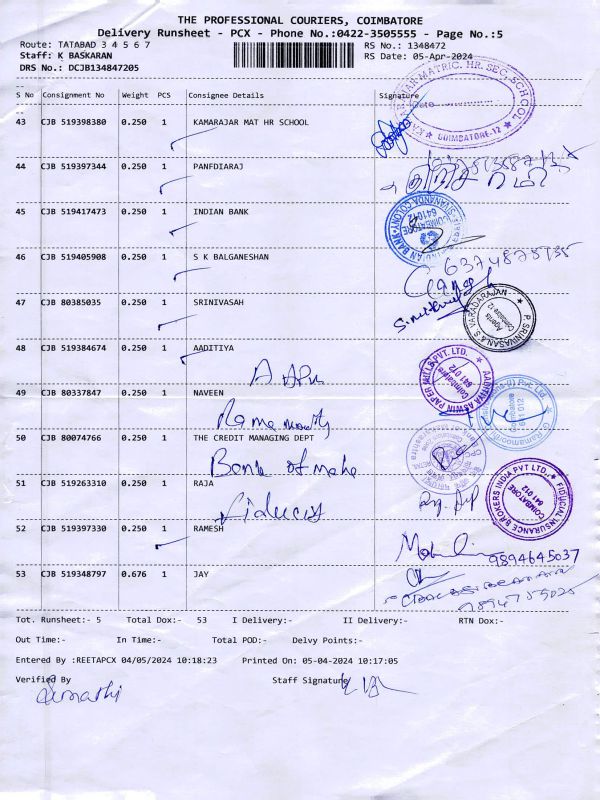 THE PROFESSIONAL COURIERS, COIMBATORE
Delivery Runsheet - PCX - Phone No.:0422-3505555 - Page No.:5
Route: TATABAD 3 4 5 6 7 RS No.: 1348472
Staff: K BASKARAN RS Date: 05-Apr-2024
DRS No.: DCJB134847205
S No Consignment No Weight PCS Consignee Details Signature
43 CJB 519398380 0.250 1 KAMARAJAR MAT HR SCHOOL
MATRIC. HR. SEC. SCHOOL
Date
COIMBATORE-12
44 CJB 519397344 0.250 1 PANFDIARAJ
45 CJB 519417473 0.250 1 INDIAN BANK
INDIAN BANK
COIMBATORE
641012
46 CJB 519405908 0.250 1 S K BALGANESHAN
6374878535
47 CJB 80385035 0.250 1 SRINIVASAH
P. SRINIVASAN & S. VARADARAJAN
Agents
Coimbatore-12
48 CJB 519384674 0.250 1 AADITIYA
AADITIYA ASWIN PAPER MILLS PVT. LTD.
Coimbatore
641 012
49 CJB 80337847 0.250 1 NAVEEN
Coimbatore
641 012
50 CJB 80074766 0.250 1 THE CREDIT MANAGING DEPT
Bank of maha
51 CJB 519263310 0.250 1 RAJA
FIDUCIAL INSURANCE BROKERS INDIA PVT LTD.
COIMBATORE
641 012
52 CJB 519397330 0.250 1 RAMESH
9894645037
53 CJB 519348797 0.676 1 JAY
Tot. Runsheet:- 5 Total Dox:- 53 I Delivery:- II Delivery:- RTN Dox:-
Out Time:- In Time:- Total POD:- Delvy Points:-
Entered By :REETAPCX 04/05/2024 10:18:23 Printed On: 05-04-2024 10:17:05
Verified By Staff Signature